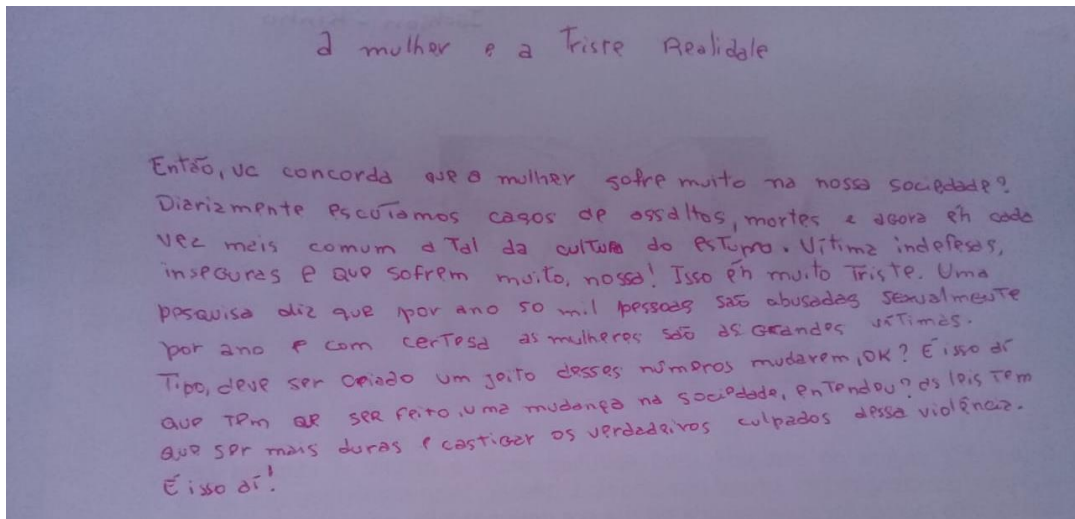 A mulher e a Triste Realidade
Então, vc concorda que a mulher sofre muito na nossa sociedade?
Diariamente escutamos casos de assaltos, mortes e agora éh cada
vez mais comum a tal da cultura do estupro. Vítima indefesas,
inseguras e que sofrem muito, nossa! Isso éh muito triste. Uma
pesquisa diz que por ano 50 mil pessoas são abusadas sexualmente
por ano e com certesa as mulheres são as grandes vítimas.
Tipo, deve ser criado um jeito desses números mudarem, OK? É isso aí
que tem que ser feito, uma mudança na sociedade, entendeu? as leis tem
que ser mais duras e castigar os verdadeiros culpados dessa violência.
É isso aí!